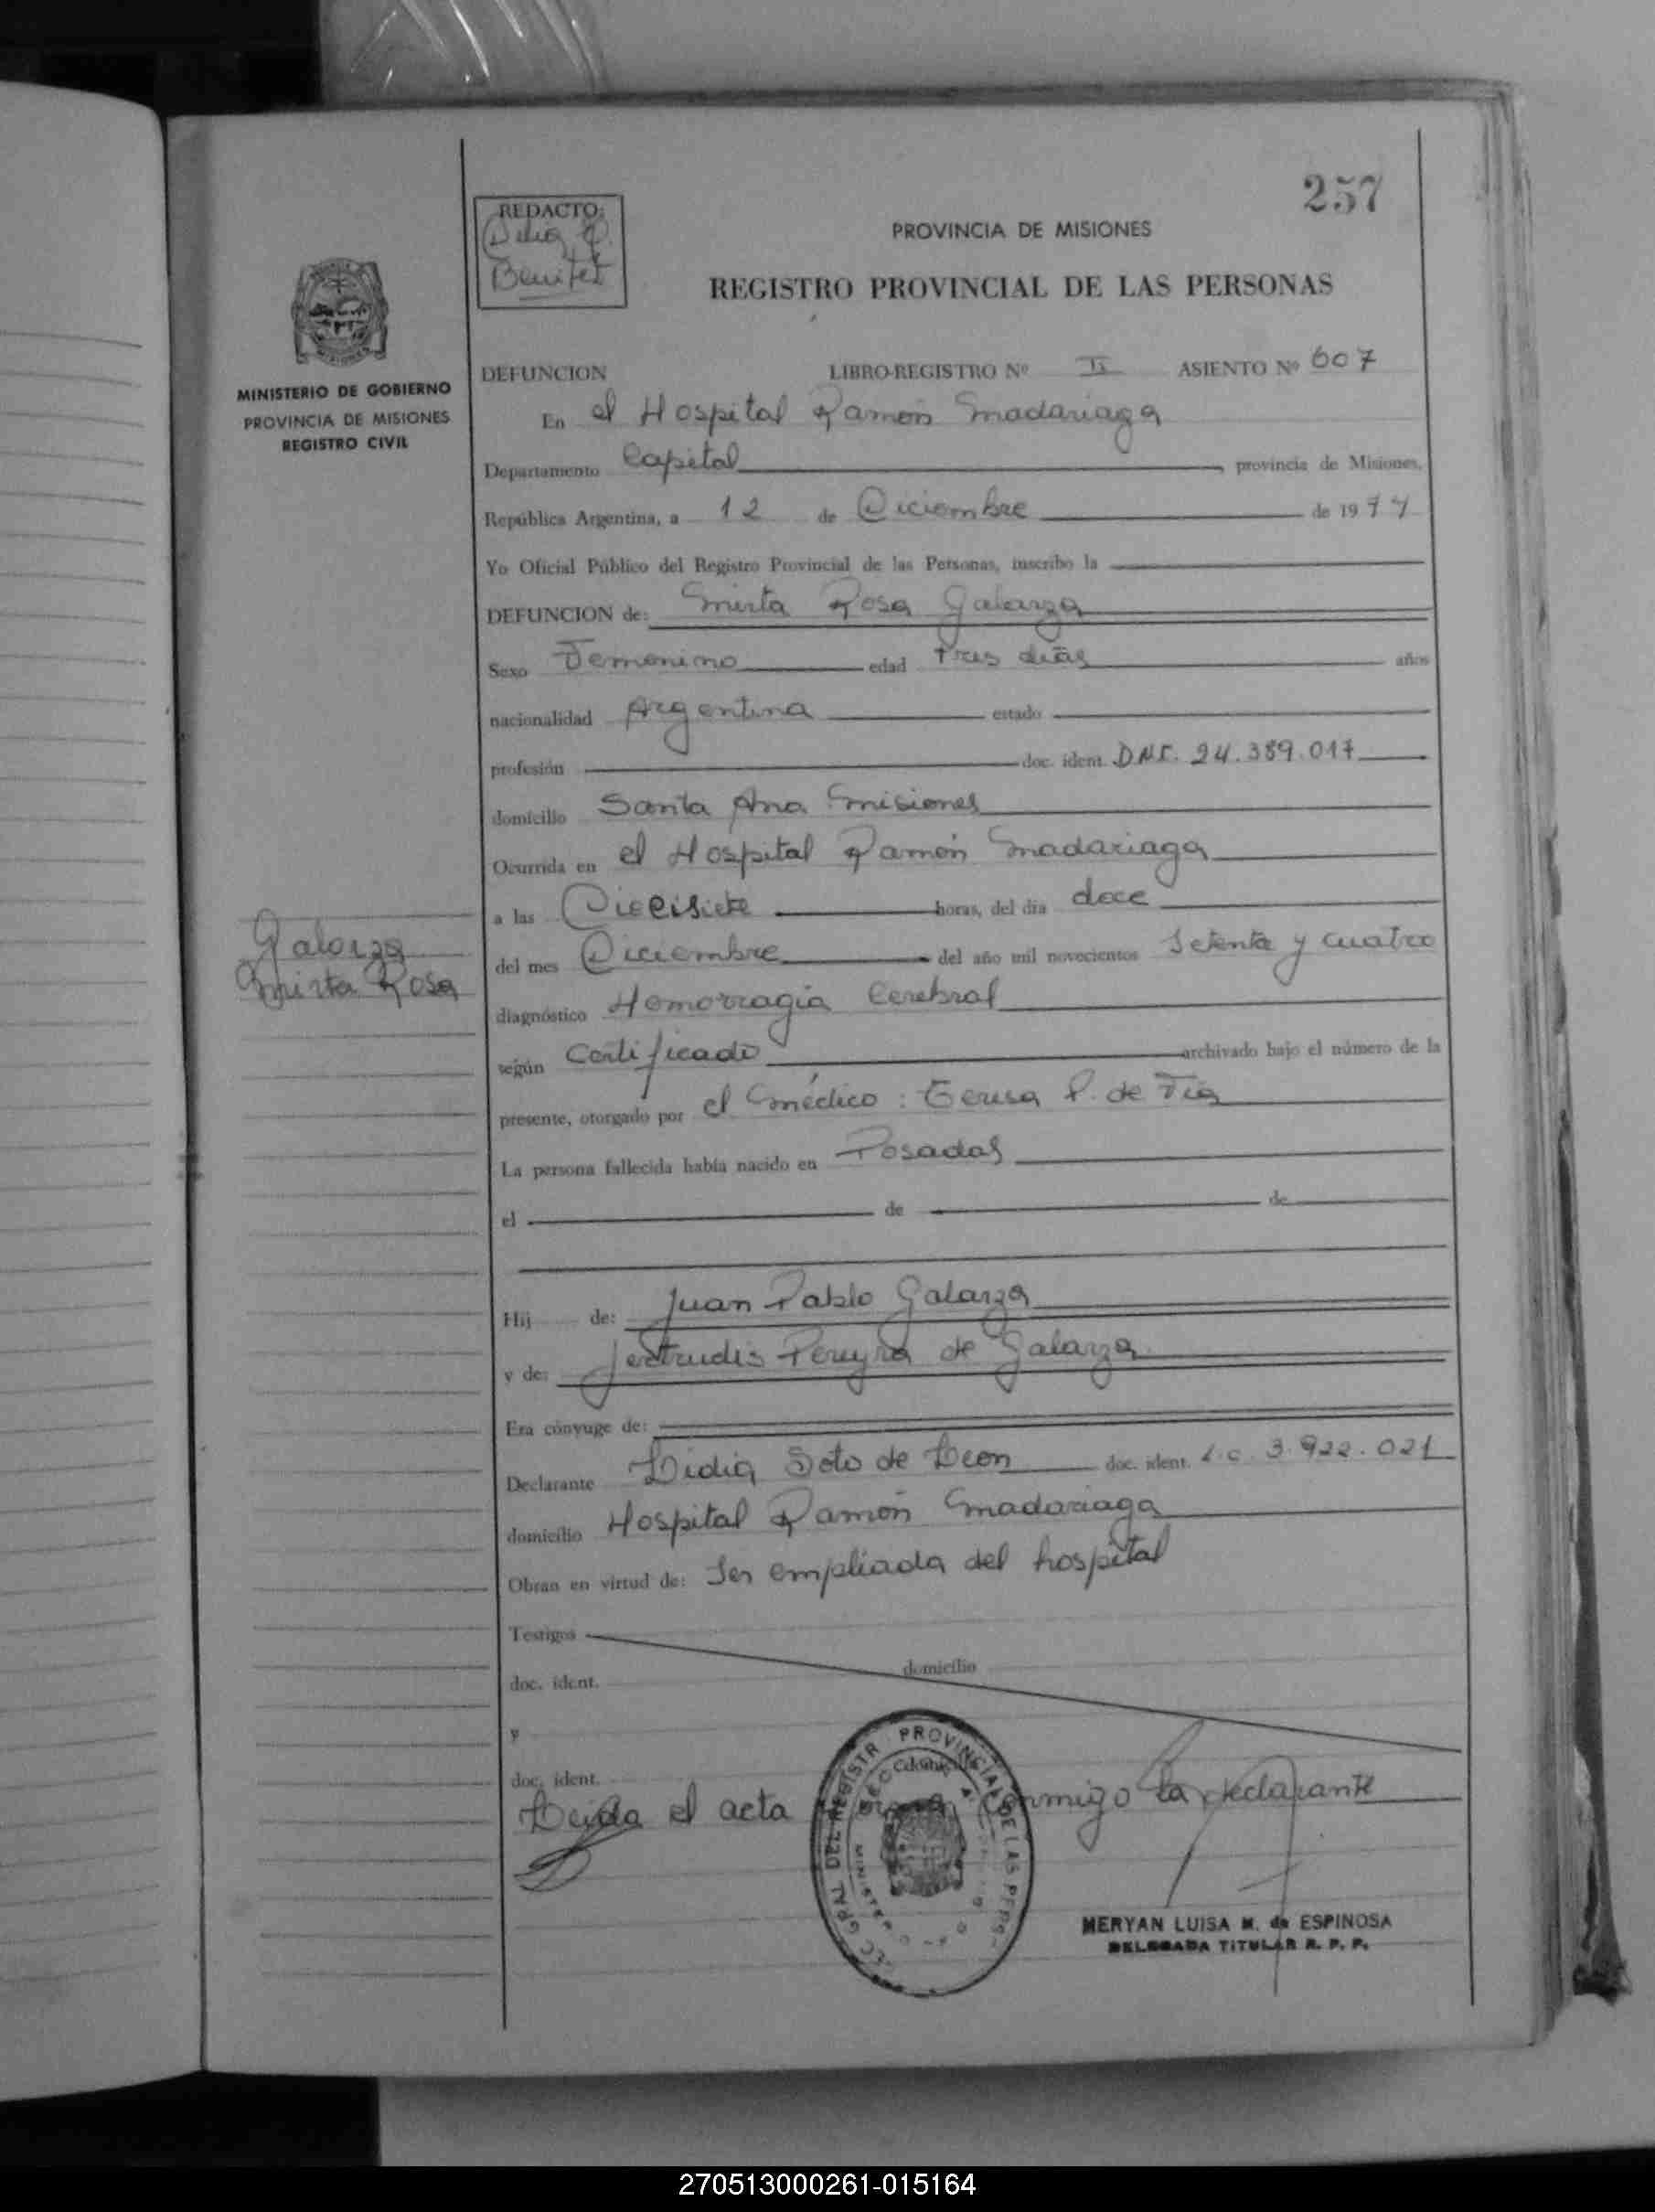 257
REDACTO:
Delia
Benitez
PROVINCIA DE MISIONES
REGISTRO PROVINCIAL DE LAS PERSONAS
MINISTERIO DE GOBIERNO
PROVINCIA DE MISIONES
REGISTRO CIVIL
DEFUNCION LIBRO-REGISTRO Nº II ASIENTO Nº 607
En el Hospital Ramón Madariaga
Departamento Capital provincia de Misiones,
República Argentina, a 12 de Diciembre de 1974
Yo Oficial Público del Registro Provincial de las Personas, inscribo la
DEFUNCION de: Mirta Rosa Galarza
Sexo Femenino edad tres días años
nacionalidad Argentina estado
profesión doc. ident. DNI. 24.389.017
domicilio Santa Ana Misiones
Ocurrida en el Hospital Ramón Madariaga
a las Diecisiete horas, del día doce
del mes Diciembre del año mil novecientos Setenta y cuatro
Galarza
Mirta Rosa
diagnóstico Hemorragia Cerebral
según Certificado archivado bajo el número de la
presente, otorgado por el Médico: Teresa P. de
La persona fallecida había nacido en Posadas
el de de
Hij de: Juan Pablo Galarza
y de: Jertrudis Pereyra de Galarza
Era cónyuge de:
Declarante Lidia Soto de Leon doc. ident. L.C. 3.922.021
domicilio Hospital Ramón Madariaga
Obran en virtud de: Ser empliada del hospital
Testigos
doc. ident. domicilio
y
doc. ident.
Leida el acta conmigo la declarante
PROVINCIAL DE LAS PERS
GRAL DEL REGISTR
MERYAN LUISA M. de ESPINOSA
DELEGADA TITULAR R. P. P.
270513000261-015164